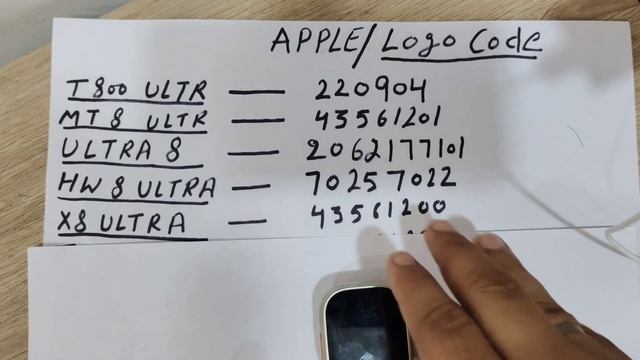 APPLE/Logo Code
T800 ULTR — 220904
MT8 ULTR — 43561201
ULTRA 8 — 2062177101
HW8 ULTRA — 70257022
X8 ULTRA — 43561200